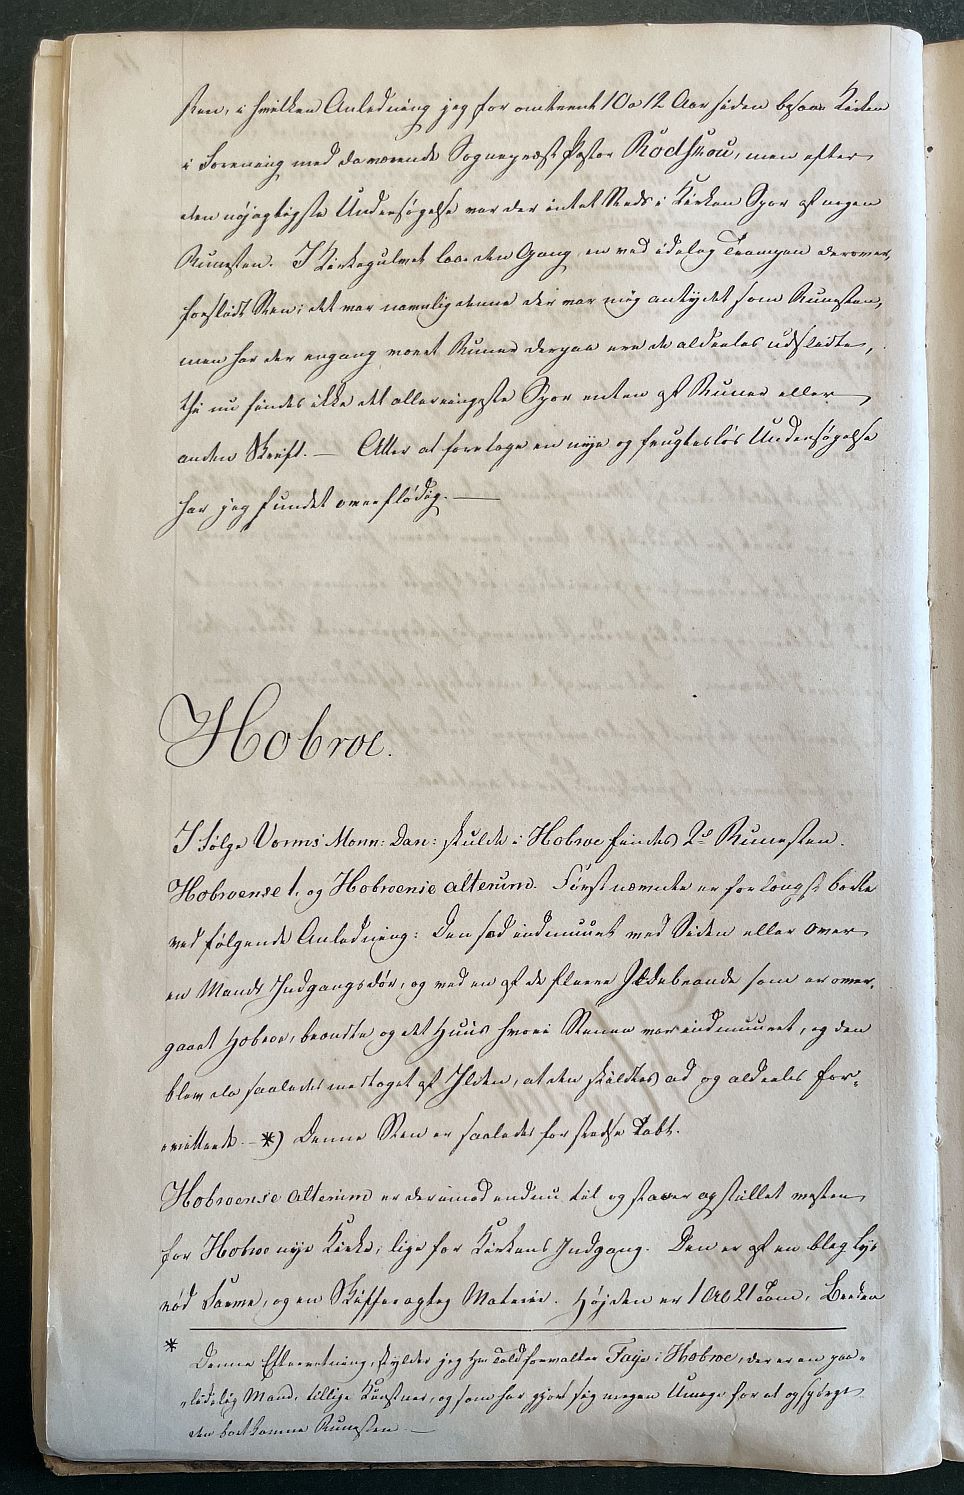 sten, i hvilken Anledning jeg for omtrent 10 a 12 Aar siden besaae Kirken
i Forening med daværende Sognepræst Pastor Rodskou, men efter
den nøjagtigste Undersøgelse var der intet Steds i Kirken Spor af nogen
Runesten. I Kirkegulvet laae den Gang en ved idelag Trampen derover,
forslidt Sten; det var navnlig denne der var mig antydet som Runesten,
men har der engang været Runer derpaa ere de aldeeles udslidte,
thi nu findes ikke det allerringeste Spor enten af Runer eller
anden Skrift. — Atter at foretage en nye og frugtesløs Undersøgelse
har jeg fundet overflødig. —
Hobroe.
I følge Vorms Monn: Dan: skulde i Hobroe findes 2de Runesten.
Hobroense 1. og Hobroense alterum. Førstnævnte er for længst borte
ved følgende Anledning: Den sad indmuuret ved Siden eller over
en Mands Indgangsdør, og ved en af de fleere Ildebrande som er over-
gaaet Hobroe, brændte og det Huus hvori Stenen var indmuuret, og den
blev da saaledes medtaget af Ilden, at den skaldtes ad og aldeeles for-
vittrede. — *) Denne Sten er saaledes for stedse Tabt.
Hobroense alterum er derimod endnu til og staaer opstillet vesten
for Hobroe nye Kirke, lige for Kirkens Indgang. Den er af en bleg lys
rød Farve, og en Skifferagteg Materie. Højden er 1 Al 21 Tom, Breden
* Denne Efterretning, skylder jeg Hr Toldforvalter Faye i Hobroe, der er en paa-
lidelig Mand, tillige Kunstner, og som har gjort sig megen Umage for at opspørge
den bortkomne Runesten. —